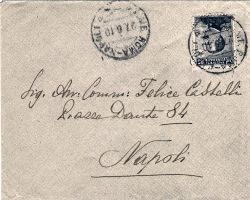 ROMA
27.6.10
Sig. Avv. Comm: Felice Castelli
Piazza Dante 84
Napoli